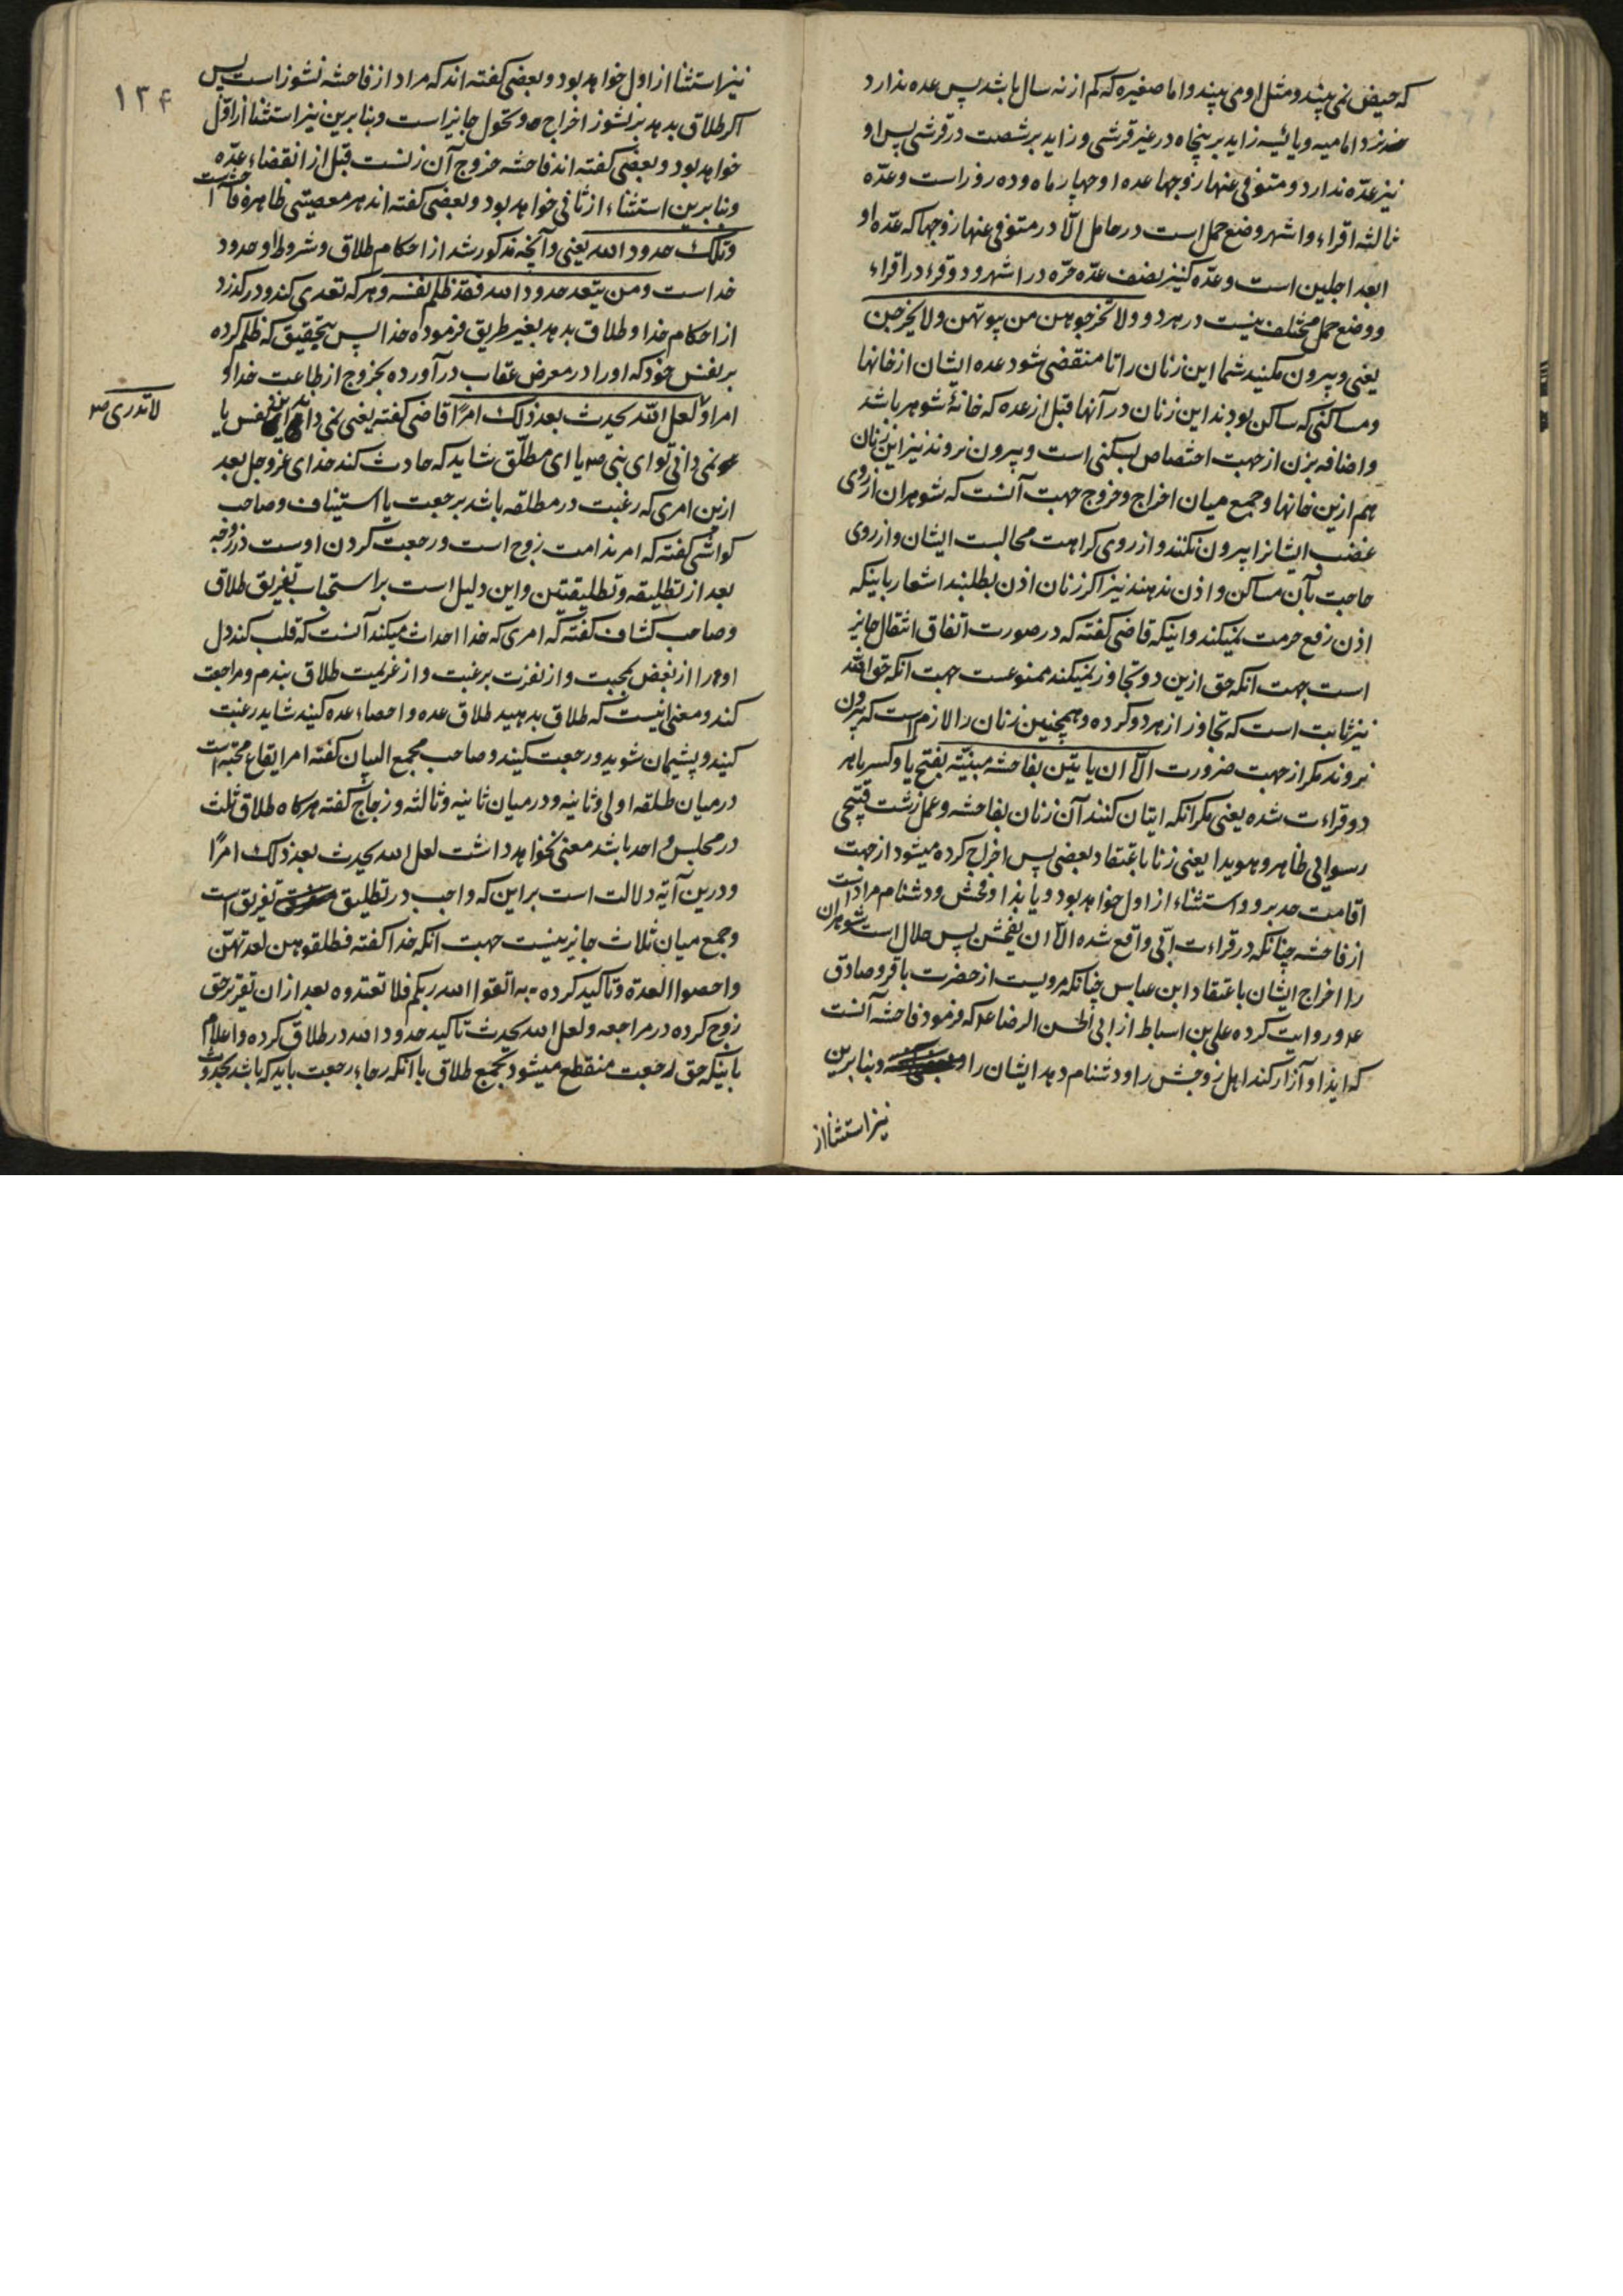 که حیض نمی بیند و مثل او می بیند و اما صغیره که کم از نه سال باشد پس عده ندارد
نزد امامیه و یائسه زاید بر پنجاه در غیر قرشی و زاید بر شصت در قرشی پس او
نیز عدّه ندارد و متوفی عنها زوجها عده او چهار ماه و ده روز است و عدّه
ثالثه اقراء و اشهر و ضع حمل است در حامل الّا در متوفی عنها زوجها که عدّه او
ابعد اجلین است و عدّه کنیز نصف عدّه حرّه در اشهر و دو قرء در اقراء
و وضع حمل مختلف نیست در هر دو و لا تخرجوهن من بیوتهن ولا یخرجن
یعنی و بیرون مکنید شما این زنان را تا منقضی شود عده ایشان از خانها
و مساکنی که ساکن بودند این زنان در آنها قبل از عده که خانهٔ شوهر باشد
و اضافه بزن از جهت اختصاص بسکنی است و بیرون نروند نیز این زنان
هم ازین خانها و جمع میان اخراج و خروج جهت آنست که شوهران از روی
غضب ایشانرا بیرون نکنند و از روی کراهت مجالست ایشان و از روی
حاجت بآن مساکن و اذن ندهند نیز اکر زنان اذن بطلبند اشعار باینکه
اذن رفع حرمت نمیکند و اینکه قاضی کفته که در صورت اتفاق انتقال جایز
است جهت انکه حق ازین دو تجاوز نمیکند ممنوعست جهت انکه حق الله
نیز ثابت است که تجاوز از هر دو کرده و همچنین زنان را لازم است که بیرون
نروند مکر از جهت ضرورت الّا ان یاتین بفاحشه مبینّه بفتح یا و کسر یا هر
دو قراءت شده یعنی مکر انکه اتیان کنند آن زنان بفاحشه و عمل زشت قبیحی
رسوایی ظاهر و هویدا یعنی زنا باعتقاد بعضی پس اخراج کرده میشود از جهت
اقامت حد برو و استثناء از اول خواهد بود و یا بذا و فحش و دشنام مراد است
از فاحشه چنانکه در قراءت ابّی واقع شده الّا ان یفحشن پس حلال است شوهران
را اخراج ایشان باعتقاد ابن عباس چنانکه مرویست از حضرت باقر و صادق
ع و روایت کرده علی بن اسباط از ابی الحسن الرضا ع که فرمود فاحشه آنست
که ایذا و آزار کند اهل زوجش را و دشنام دهد ایشان را و بنابرین
نیز استثنا از
۱۳۴
نیز استثنا از اول خواهد بود و بعضی کفته اند که مراد از فاحشه نشوز است پس
اکر طلاق بدهد بنشوز اخراج و تحول جایز است و بنابرین نیز استثنا از اوّل
خواهد بود و بعضی کفته اند فاحشه خروج آن زنست قبل از انقضاء عدّه
و بنابرین استثناء از ثانی خواهد بود و بعضی کفته اند هر معصیتی ظاهره فاحشه است
و تلک حدود الله یعنی و آنچه مذکور شد از احکام طلاق و شروط او حدود
خداست و من یتعد حدود الله فقد ظلم نفسه و هر که تعدی کند و درکذرد
از احکام خدا و طلاق بدهد بغیر طریق فرموده خدا پس بتحقیق که ظلم کرده
بر نفس خود که او را در معرض عقاب درآورده بخروج از طاعت خدا و
امر او لعل الله یحدث بعد ذلک امرًا قاضی کفته یعنی نمی داند این نفس یا
نمی دانی تو ای نبی ص یا ای مطلّق شاید که حادث کند خدای عز و جل بعد
ازین امری که رغبت در مطلقه باشد برجعت یا استیناف و صاحب
کواشی کفته که امر ندامت زوج است و رجعت کردن اوست در زوجه
بعد از تطلیقه و تطلیقتین و این دلیل است بر استحباب تفریق طلاق
و صاحب کشاف کفته که امری که خدا احداث میکند آنست که قلب کند دل
او را از بغض بمحبت و از نفرت برغبت و از عزیمت طلاق بندم و مراجعت
کند و معنی اینست که طلاق بدهید طلاق عده و احصاء عده کنید شاید رغبت
کنید و پشیمان شوید و رجعت کنید و صاحب مجمع البیان کفته امر ایقاع محبت است
در میان طلقه اولی و ثانیه و در میان ثانیه و ثالثه و زجاج کفته هرکاه طلاق ثلث
در مجلس واحد باشد معنی نخواهد داشت لعل الله یحدث بعد ذلک امرًا
و درین آیه دلالت است بر این که واجب در تطلیق تفریق است
و جمع میان ثلاث جایز نیست جهت انکه خدا کفته فطلقوهن لعدتهنّ
و احصوا العدة و تاکید کرده به اتقوا الله ربکم فلا تعتدوه بعد ازان تقریر حق
زوج کرده در مراجعه و لعل الله یحدث تاکید حدود الله در طلاق کرده و اعلام
باینکه حق رجعت منقطع میشود بجمع طلاق با آنکه رجاء رجعت باید که باشد بحدوث
لا تدری ص